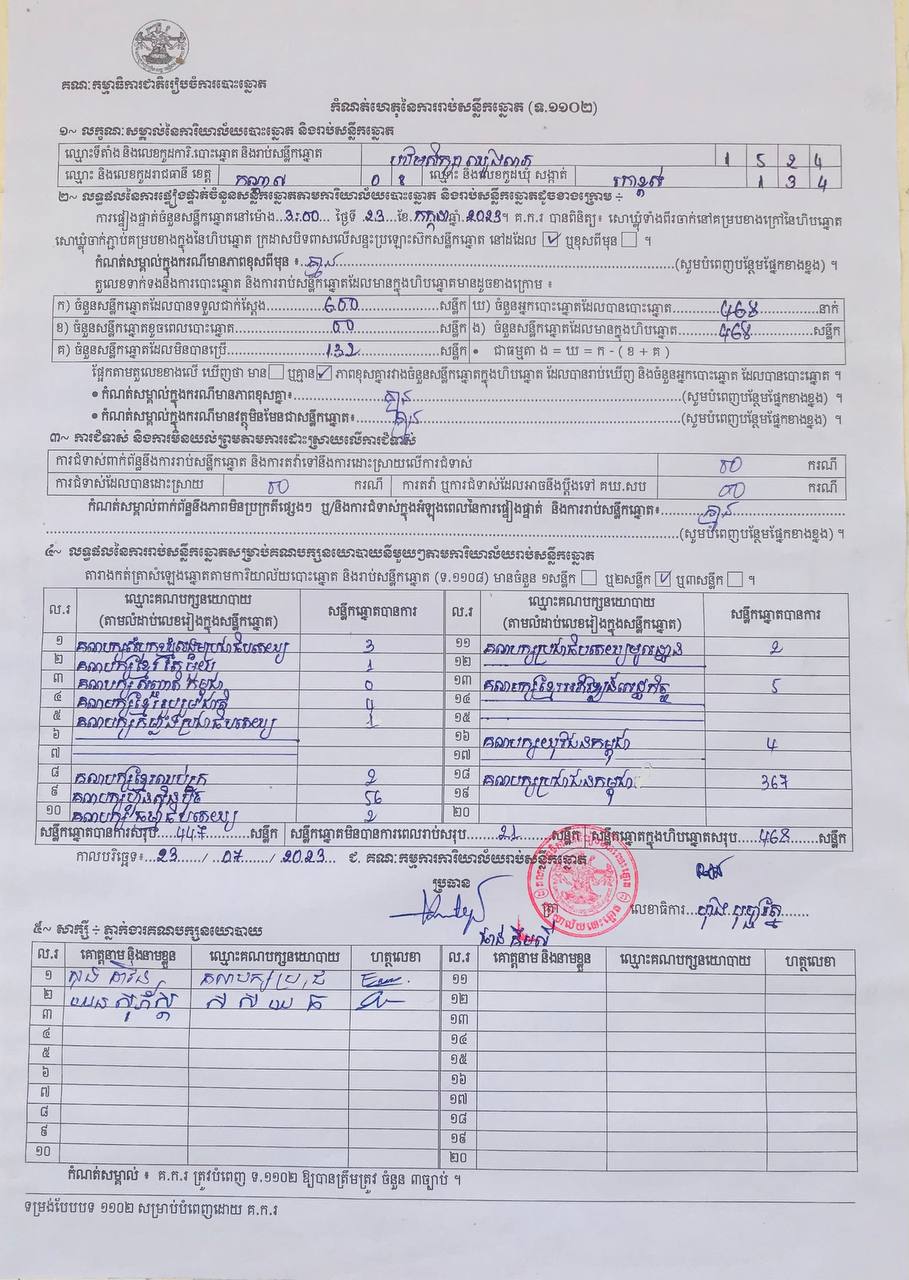 គណៈកម្មាធិការជាតិរៀបចំការបោះឆ្នោត
កំណត់ហេតុនៃការរាប់សន្លឹកឆ្នោត (ទ.១១០២)
១~ លក្ខណៈសម្គាល់នៃការិយាល័យបោះឆ្នោត និងរាប់សន្លឹកឆ្នោត
ឈ្មោះទីតាំង និងលេខកូដការិ.បោះឆ្នោត និងរាប់សន្លឹកឆ្នោត 1 5 2 4
ឈ្មោះ និងលេខកូដរាជធានី ខេត្ត កណ្តាល 0 8 ឈ្មោះ និងលេខកូដឃុំ សង្កាត់ 1 3 4
២~ លទ្ធផលនៃការផ្ទៀងផ្ទាត់ចំនួនសន្លឹកឆ្នោតតាមការិយាល័យបោះឆ្នោត និងរាប់សន្លឹកឆ្នោតដូចខាងក្រោម ÷
ការផ្ទៀងផ្ទាត់ចំនួនសន្លឹកឆ្នោតនៅម៉ោង..3:00 ថ្ងៃទី 23..ខែ.កក្កដា.ឆ្នាំ.2023។ គ.ក.រ បានពិនិត្យ៖ សោឃ្លុំទាំងពីរចាក់នៅគម្របខាងក្រៅនៃហិបឆ្នោត
សោឃ្លុំចាក់ភ្ជាប់គម្របខាងក្នុងនៃហិបឆ្នោត ក្រដាសបិទពាសលើសន្ទះប្រឡោះស៊កសន្លឹកឆ្នោត នៅដដែល ☑ ឬខុសពីមុន ☐ ។
កំណត់សម្គាល់ក្នុងករណីមានភាពខុសពីមុន ៖..គ្មាន......(សូមបំពេញបន្ថែមផ្នែកខាងខ្នង) ។
តួលេខទាក់ទងនឹងការបោះឆ្នោត និងការរាប់សន្លឹកឆ្នោតដែលមានក្នុងហិបឆ្នោតមានដូចខាងក្រោម ៖
ក) ចំនួនសន្លឹកឆ្នោតដែលបានទទួលជាក់ស្តែង......600......សន្លឹក ឃ) ចំនួនអ្នកបោះឆ្នោតដែលបានបោះឆ្នោត......468......នាក់
ខ) ចំនួនសន្លឹកឆ្នោតខូចពេលបោះឆ្នោត......00......សន្លឹក ង) ចំនួនសន្លឹកឆ្នោតដែលមានក្នុងហិបឆ្នោត......468......សន្លឹក
គ) ចំនួនសន្លឹកឆ្នោតដែលមិនបានប្រើ......132......សន្លឹក • ជាធម្មតា ង = ឃ = ក - ( ខ + គ )
ផ្អែកតាមតួលេខខាងលើ ឃើញថា មាន ☐ ឬគ្មាន ☑ ភាពខុសគ្នារវាងចំនួនសន្លឹកឆ្នោតក្នុងហិបឆ្នោត ដែលបានរាប់ឃើញ និងចំនួនអ្នកបោះឆ្នោត ដែលបានបោះឆ្នោត ។
• កំណត់សម្គាល់ក្នុងករណីមានភាពខុសគ្នា៖......គ្មាន......(សូមបំពេញបន្ថែមផ្នែកខាងខ្នង) ។
• កំណត់សម្គាល់ក្នុងករណីមានវត្ថុមិនមែនជាសន្លឹកឆ្នោត៖......គ្មាន......(សូមបំពេញបន្ថែមផ្នែកខាងខ្នង) ។
៣~ ការជំទាស់ និងការមិនយល់ព្រមតាមការដោះស្រាយលើការជំទាស់
ការជំទាស់ពាក់ព័ន្ធនឹងការរាប់សន្លឹកឆ្នោត និងការតវ៉ាទៅនឹងការដោះស្រាយលើការជំទាស់ 00 ករណី
ការជំទាស់ដែលបានដោះស្រាយ 00 ករណី ការតវ៉ា ឬការជំទាស់ដែលអាចនឹងប្តឹងទៅ គឃ.សប 00 ករណី
កំណត់សម្គាល់ពាក់ព័ន្ធនឹងភាពមិនប្រក្រតីផ្សេងៗ ឬ/និងការជំទាស់ក្នុងអំឡុងពេលនៃការផ្ទៀងផ្ទាត់ និងការរាប់សន្លឹកឆ្នោត៖......គ្មាន......
......(សូមបំពេញបន្ថែមផ្នែកខាងខ្នង) ។
៤~ លទ្ធផលនៃការរាប់សន្លឹកឆ្នោតសម្រាប់គណបក្សនយោបាយនីមួយៗតាមការិយាល័យរាប់សន្លឹកឆ្នោត
តារាងកត់ត្រាសំឡេងឆ្នោតតាមការិយាល័យបោះឆ្នោត និងរាប់សន្លឹកឆ្នោត (ទ.១១០៨) មានចំនួន ១សន្លឹក ☐ ឬ២សន្លឹក ☑ ឬ៣សន្លឹក ☐ ។
ល.រ ឈ្មោះគណបក្សនយោបាយ (តាមលំដាប់លេខរៀងក្នុងសន្លឹកឆ្នោត) សន្លឹកឆ្នោតបានការ ល.រ ឈ្មោះគណបក្សនយោបាយ (តាមលំដាប់លេខរៀងក្នុងសន្លឹកឆ្នោត) សន្លឹកឆ្នោតបានការ
១ 3 ១១ គណបក្សប្រជាធិបតេយ្យមូលដ្ឋាន 2
២ 1 ១២
៣ 0 ១៣ គណបក្សខ្មែរអភិវឌ្ឍន៍សេដ្ឋកិច្ច 5
៤ គណបក្សខ្មែររួបរួមជាតិ 4 ១៤
៥ គណបក្សកម្លាំងប្រជាធិបតេយ្យ 1 ១៥
៦ ១៦ គណបក្សយុវជនកម្ពុជា 4
៧ ១៧
៨ គណបក្សខ្មែរឈប់ក្រ 2 ១៨ គណបក្សប្រជាជនកម្ពុជា 367
៩ គណបក្សហ៊្វុនស៊ិនប៉ិច 56 ១៩
១០ គណបក្សធម្មាធិបតេយ្យ 2 ២០
សន្លឹកឆ្នោតបានការសរុប.....447.....សន្លឹក សន្លឹកឆ្នោតមិនបានការពេលរាប់សរុប......21......សន្លឹក សន្លឹកឆ្នោតក្នុងហិបឆ្នោតសរុប....468......សន្លឹក
កាលបរិច្ឆេទ៖...23....../...07....../...2023... ជ. គណៈកម្មការការិយាល័យរាប់សន្លឹកឆ្នោត
ប្រធាន
ត្រា លេខាធិការ......
៥~ សាក្សី ÷ ភ្នាក់ងារគណបក្សនយោបាយ
ល.រ គោត្តនាម និងនាមខ្លួន ឈ្មោះគណបក្សនយោបាយ ហត្ថលេខា ល.រ គោត្តនាម និងនាមខ្លួន ឈ្មោះគណបក្សនយោបាយ ហត្ថលេខា
១ គណបក្ស ប្រ.ជ ១១
២ ស ស យ ក ១២
៣ ១៣
៤ ១៤
៥ ១៥
៦ ១៦
៧ ១៧
៨ ១៨
៩ ១៩
១០ ២០
កំណត់សម្គាល់ ៖ គ.ក.រ ត្រូវបំពេញ ទ.១១០២ ឱ្យបានត្រឹមត្រូវ ចំនួន ៣ច្បាប់ ។
ទម្រង់បែបបទ ១១០២ សម្រាប់បំពេញដោយ គ.ក.រ